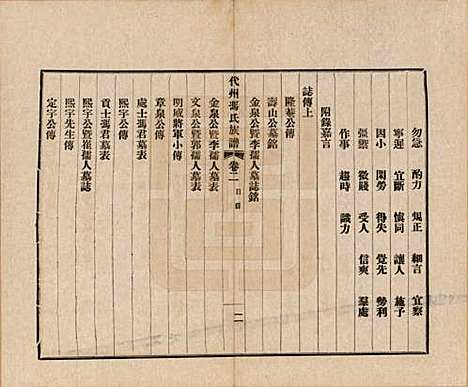 勿急 酌力 規正 細言 宜察
寧遲 宜斷 慎同 讓人 施予
因小 閑勞 得失 覺先 勢利
張盛 微賤 受人 信爽 羣處
作事 趨時 識力
附錄嘉言
誌傳上
隆菴公傳
壽山公墓銘
金泉公曁李孺人墓誌銘
代州馮氏族譜 卷二 目錄 二
金泉公曁李孺人墓表
文泉公曁郭孺人墓表
明威將軍小傳
章泉公傳
處士馮君墓表
熙宇公傳
貢士馮君墓表
熙宇公曁崔孺人墓誌
熙宇先生傳
定宇公傳